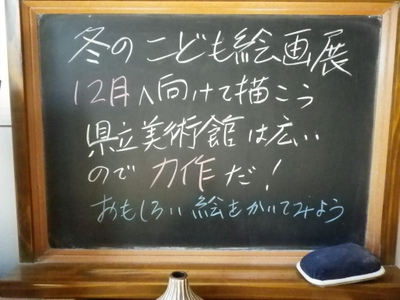 冬のこども絵画展
12月へ向けて描こう
県立美術館は広い
ので力作だ!
おもしろい絵をかいてみよう